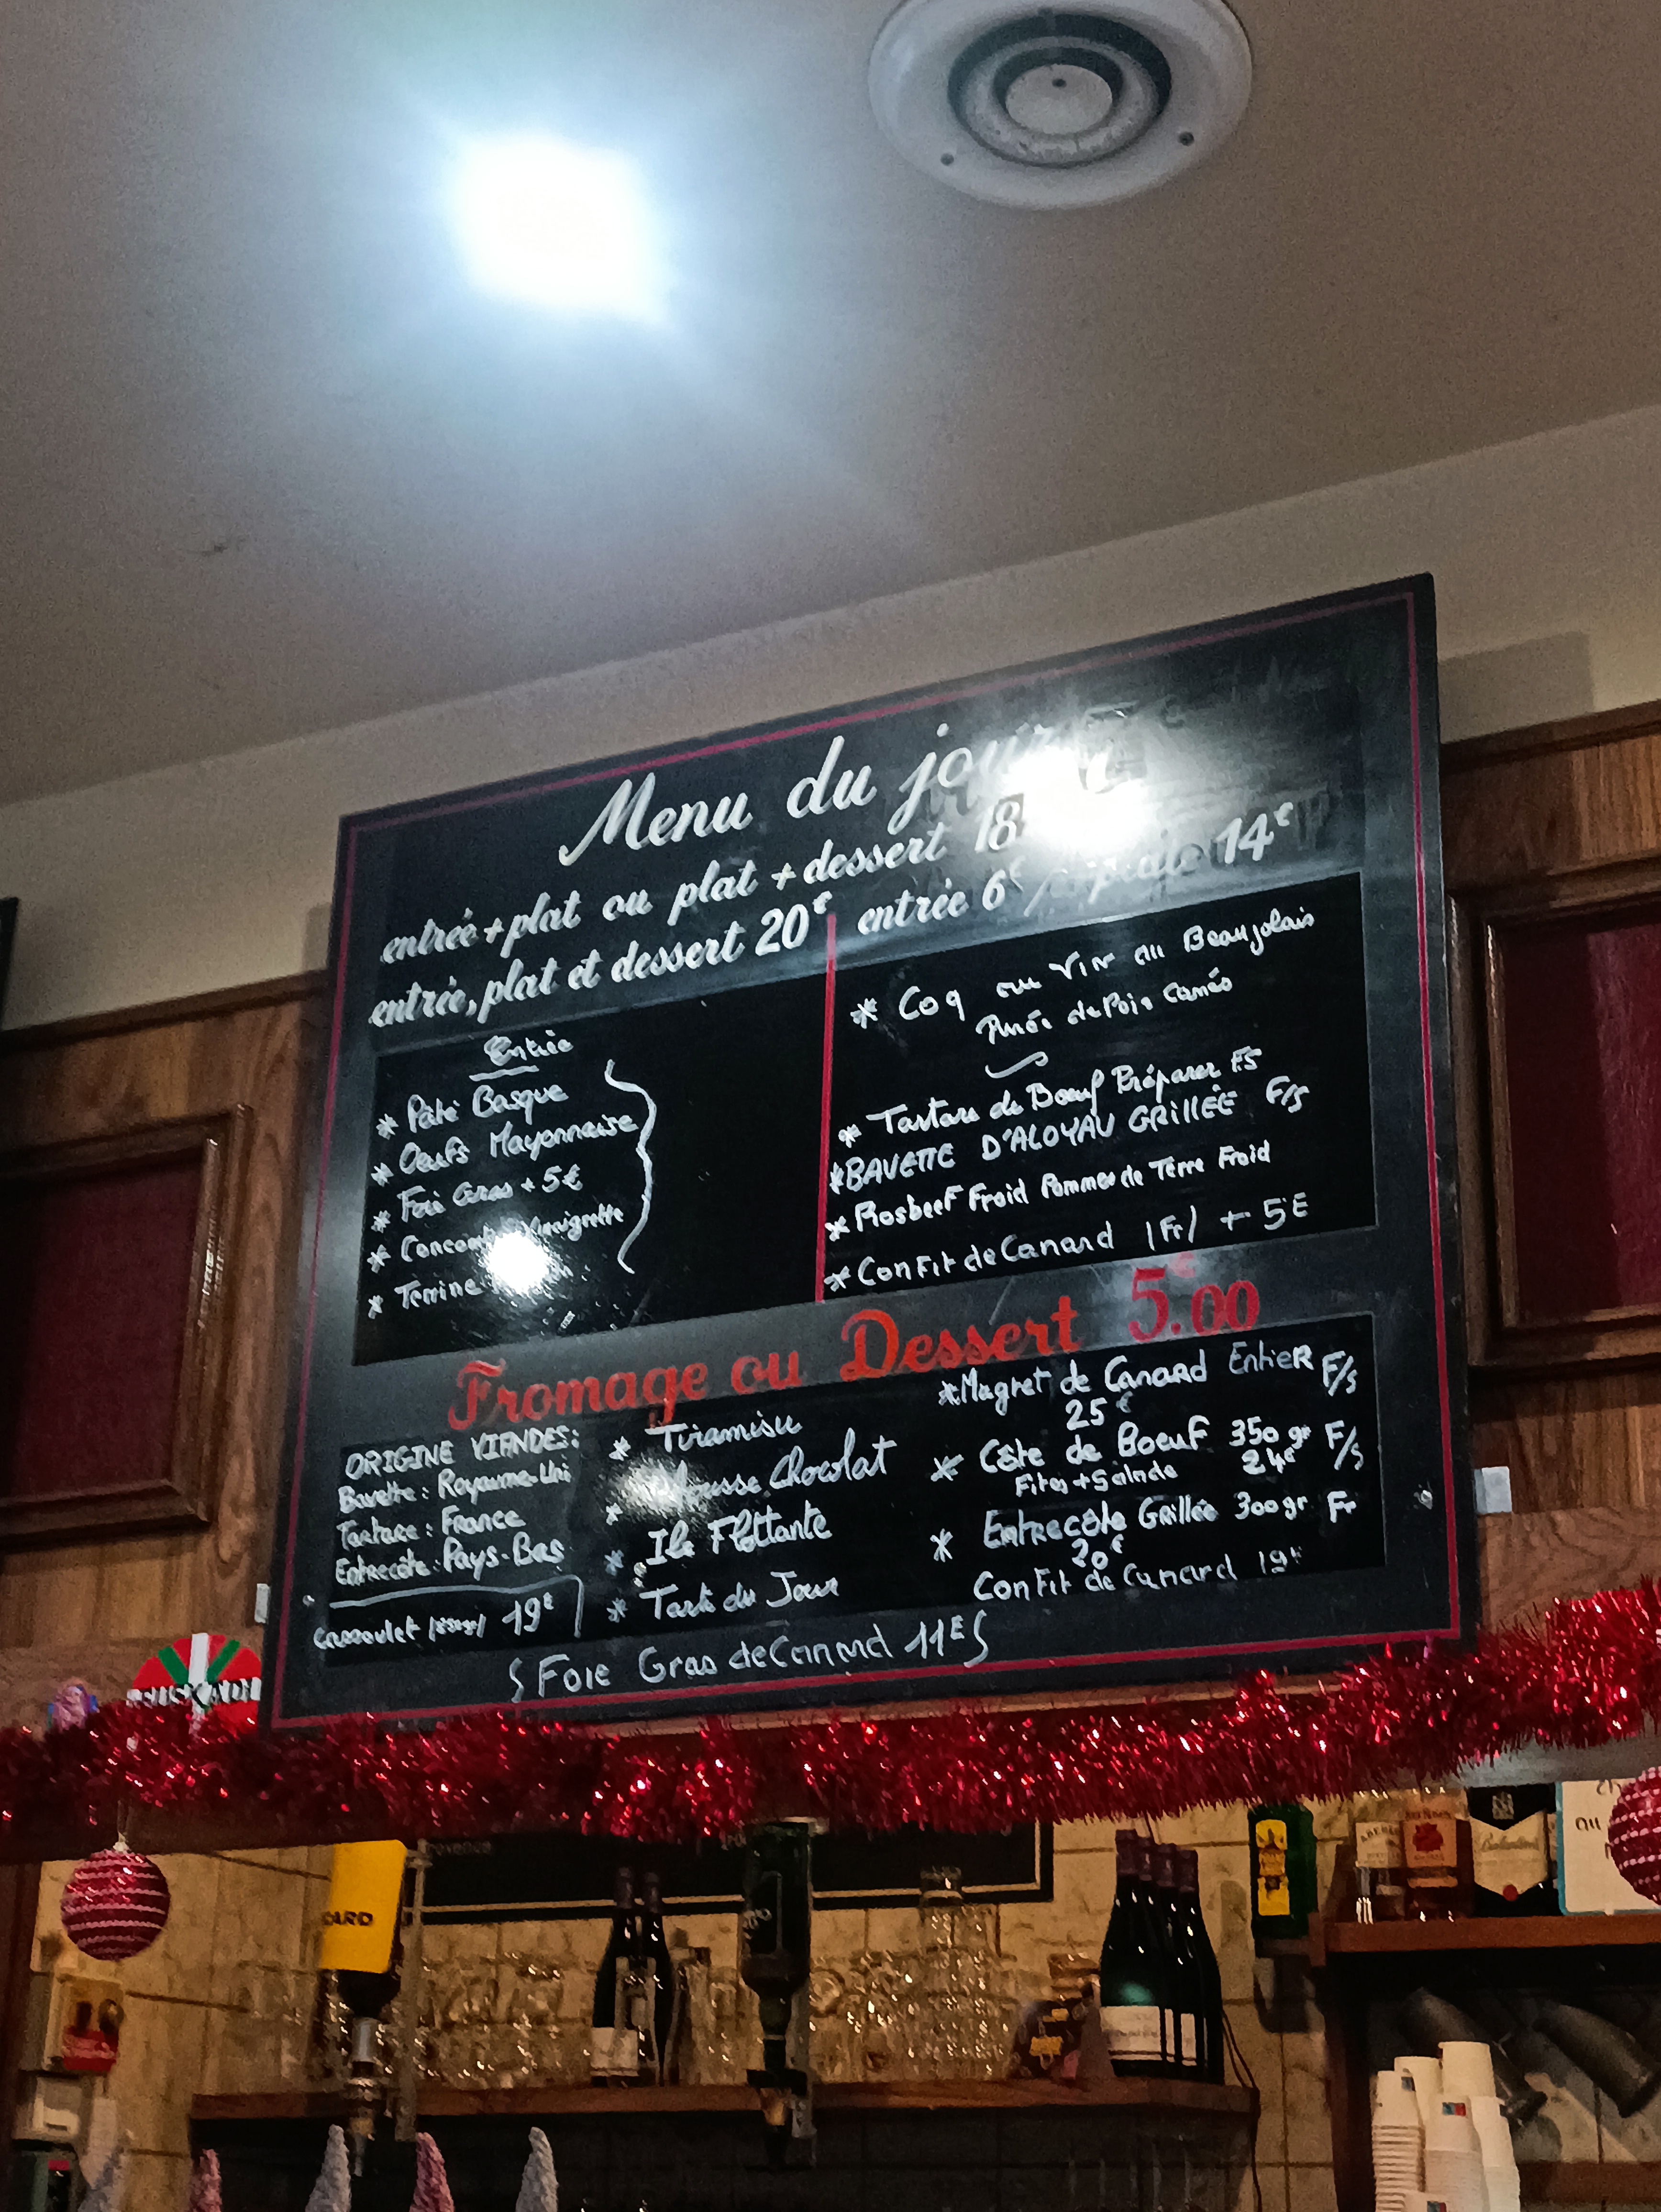 Menu du jour
entrée+plat ou plat + dessert 18
entrée, plat et dessert 20€ entrée 6€ / 14€
Entrée
* Pâté Basque
* Oeufs Mayonnaise
* Foie Gras + 5€
* Vinaigrette
* Terrine
* Coq au Vin au Beaujolais
Purée de Pois Cassés
* Tartare de Boeuf Préparer FS
* BAVETTE D'ALOYAU GRILLÉE F/S
* Rosbeef Froid Pommes de Terre Froid
* Confit de Canard (Fr) + 5€
Fromage ou Dessert 5€.00
ORIGINE VIANDES:
Bavette: Royaume-Uni
Tartare: France
Entrecôte: Pays-Bas
Cassoulet 19€
* Tiramisu
* Mousse Chocolat
* Ile Flottante
* Tarte du Jour
* Magret de Canard Entier F/s
25€
* Côte de Boeuf 350 gr F/s
Frites + Salade 24€
* Entrecôte Grillée 300 gr Fr
20€
Confit de Canard 19€
Foie Gras de Canard 11€